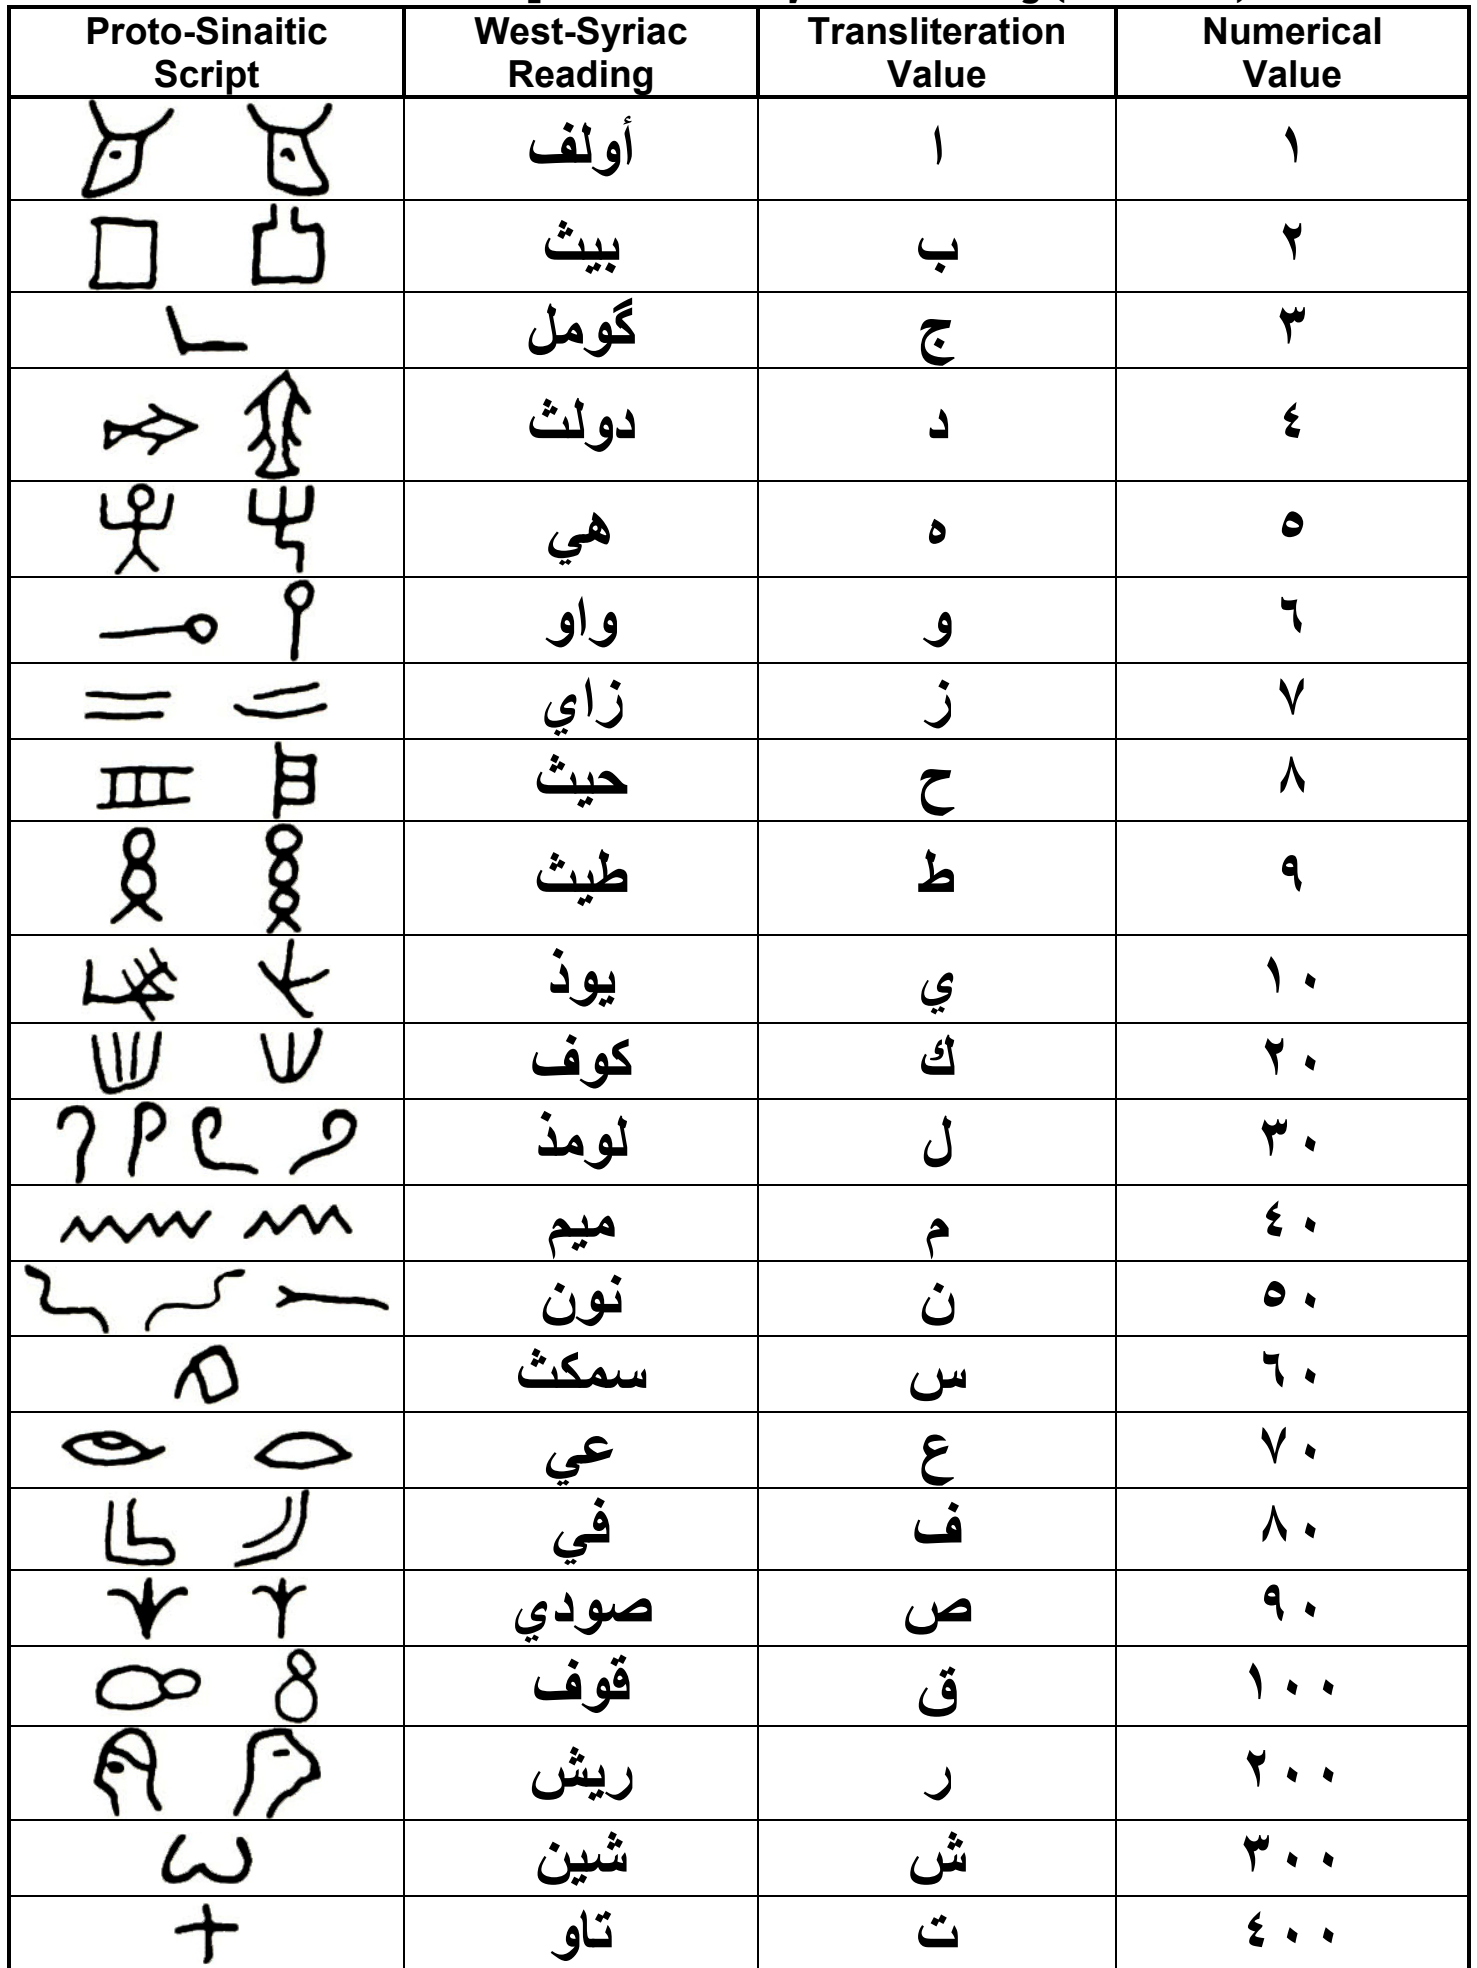 Proto-Sinaitic Script West-Syriac Reading Transliteration Value Numerical Value
أولف ا ١
بيث ب ٢
گومل ج ٣
دولث د ٤
هي ه ٥
واو و ٦
زاي ز ٧
حيث ح ٨
طيث ط ٩
يوذ ي ١٠
كوف ك ٢٠
لومذ ل ٣٠
ميم م ٤٠
نون ن ٥٠
سمكث س ٦٠
عي ع ٧٠
في ف ٨٠
صودي ص ٩٠
قوف ق ١٠٠
ريش ر ٢٠٠
شين ش ٣٠٠
تاو ت ٤٠٠